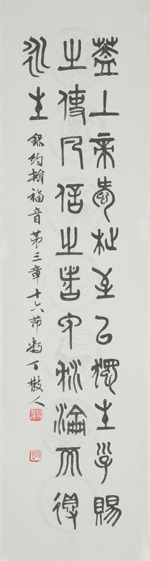 蓋上帝愛世至以獨生子賜
之俾凡信之者免沈淪而得
永生
錄約翰福音第三章十六節 散人